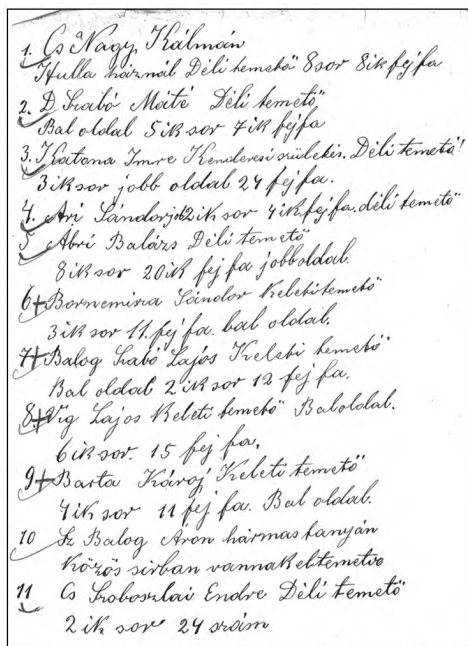 1. Cs Nagy Kálmán
Hulla háznál Déli temető 8 sor 8ik fejfa
2. D Szabó Máté Déli temető
Bal oldal 5ik sor 7ik fejfa
3. Katona Imre Kenderesi születés. Déli temető!
3ik sor jobb oldal 24 fejfa.
4. Ari Sándor 2ik sor 4ik fejfa. déli temető
5 Abri Balázs Déli temető
8ik sor 20ik fejfa jobboldal.
6+ Bornemisza Sándor Keleti temető
3ik sor 11. fejfa. bal oldal.
7+ Balog Szabó Lajos Keleti temető
Bal oldal 2ik sor 12 fejfa.
8.+ Vig Lajos Keleti temető Baloldal.
6ik sor. 15 fejfa.
9+ Barta Károj Keleti temető
4ik sor 11 fejfa. Bal oldal.
10 Sz Balog Aron hármas tanyán
Közös sirban vannak eltemetve
11 Cs Szoboszlai Endre Déli temető
2ik sor 24 szám